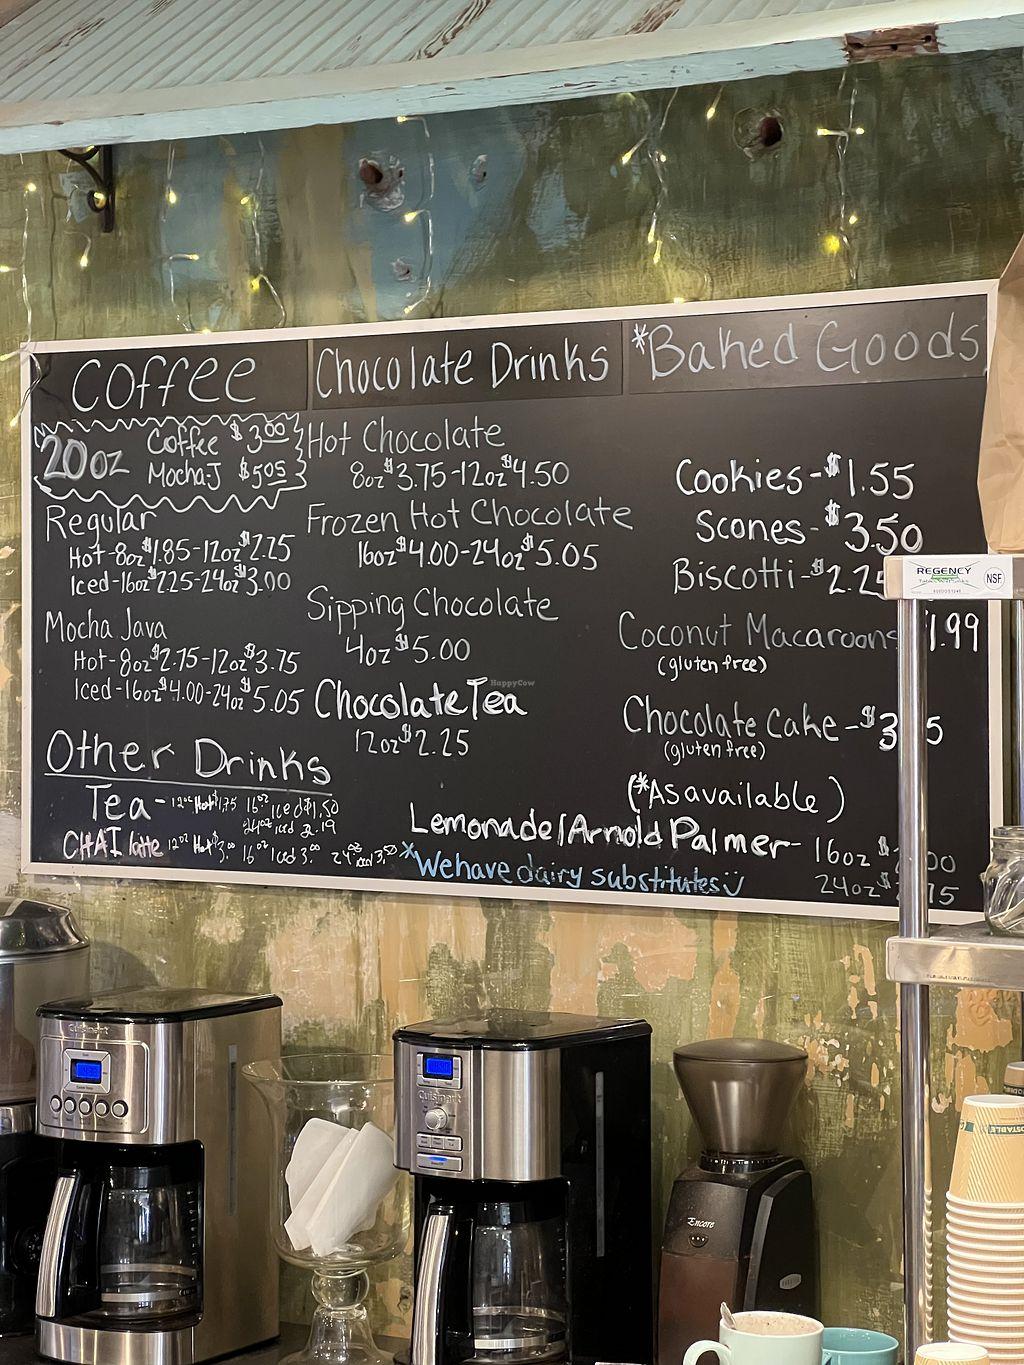 Coffee
20oz Coffee $3.00
Mocha J $5.05
Regular
Hot-8oz $1.85-12oz $2.25
Iced-16oz $2.25-24oz $3.00
Mocha Java
Hot-8oz $2.75-12oz $3.75
Iced-16oz $4.00-24oz $5.05
Other Drinks
Tea-12oz Hot $1.75 16oz iced $1.50
24oz iced 2.19
CHAI latte 12oz Hot $3.00 16oz Iced 3.00 24oz iced 3.50
Chocolate Drinks
Hot Chocolate
8oz $3.75-12oz $4.50
Frozen Hot Chocolate
16oz $4.00-24oz $5.05
Sipping Chocolate
4oz $5.00
Chocolate Tea
12oz $2.25
*Baked Goods
Cookies-$1.55
Scones-$3.50
Biscotti-$2.25
Coconut Macaroons 1.99
(gluten free)
Chocolate Cake-$3 5
(gluten free)
(*As available)
Lemonade/Arnold Palmer-16oz $ 00
24oz $ 75
*We have dairy substitutes
HappyCow
REGENCY
NSF
Cuisinart
Cuisinart
Encore